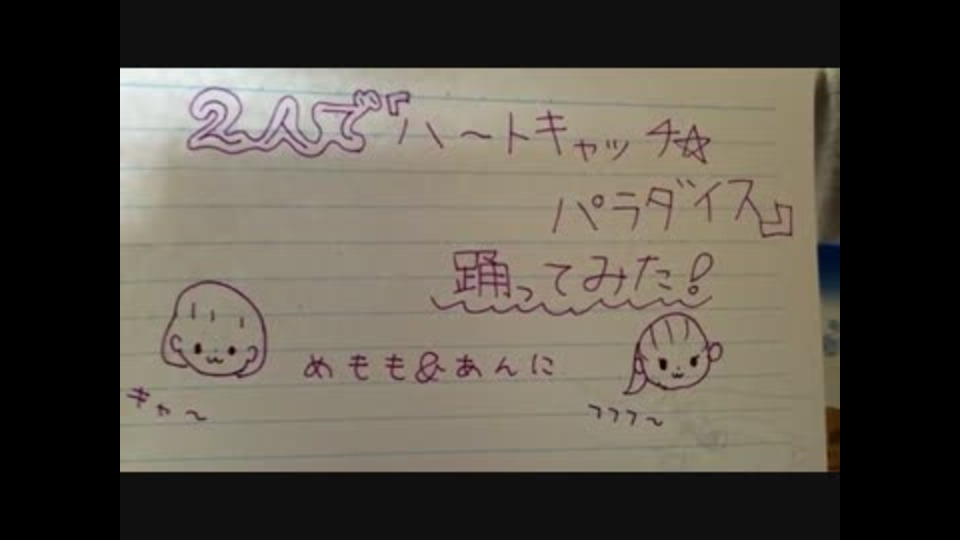 2人で『ハートキャッチ☆
パラダイス』
踊ってみた!
めもも&あんに
キャ〜
フフフ〜